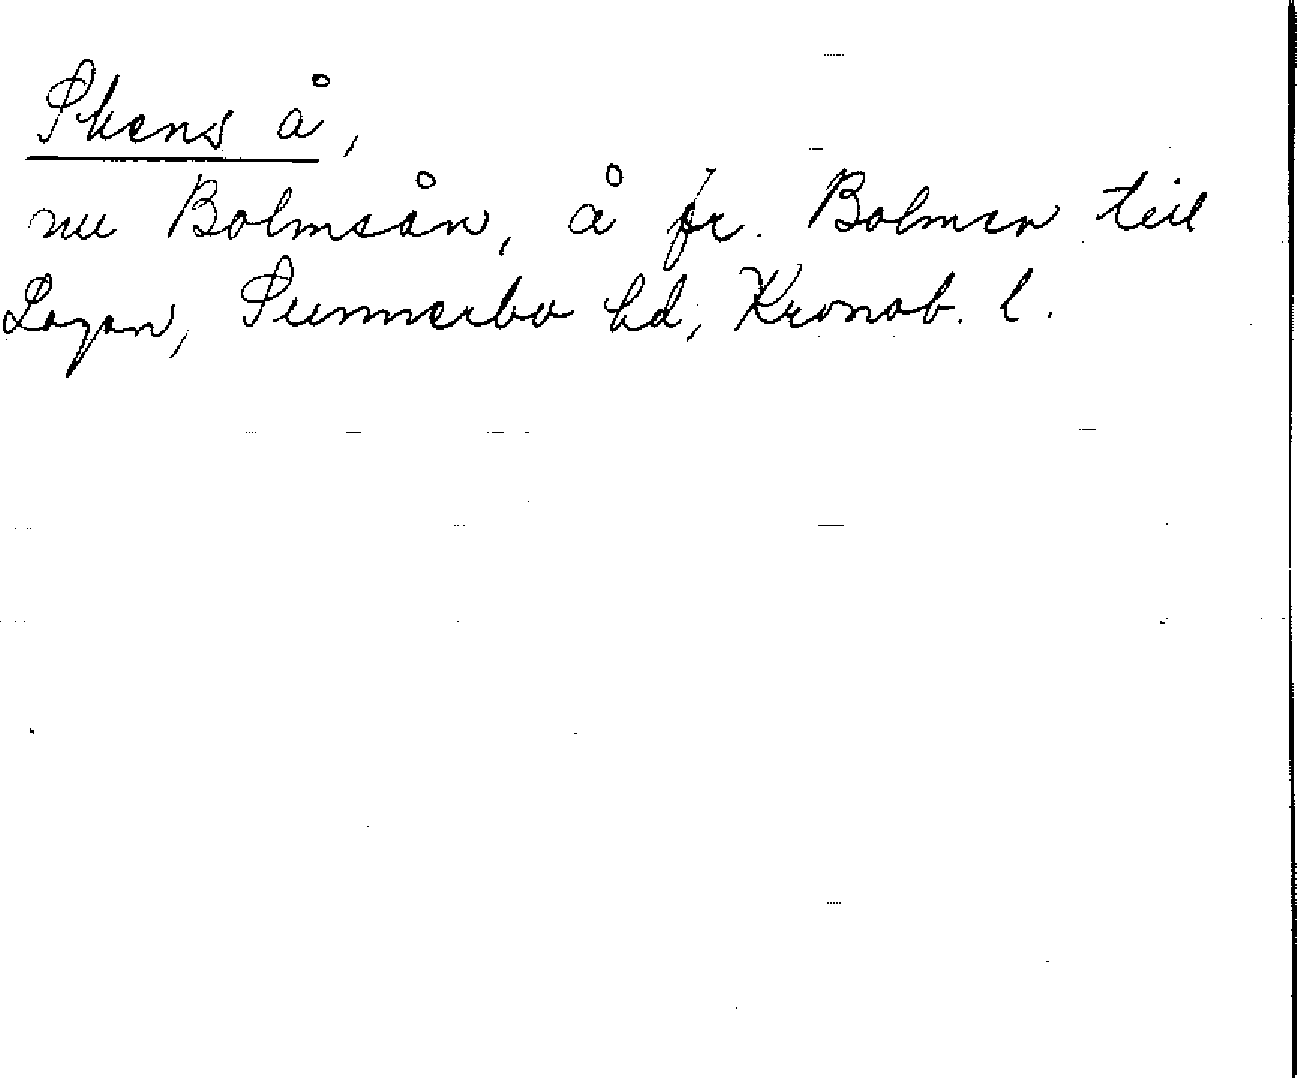 Skens å,
nu Bolmsån, å fr. Bolmen till
Lagan, Sunnerbo hd, Kronob. l.